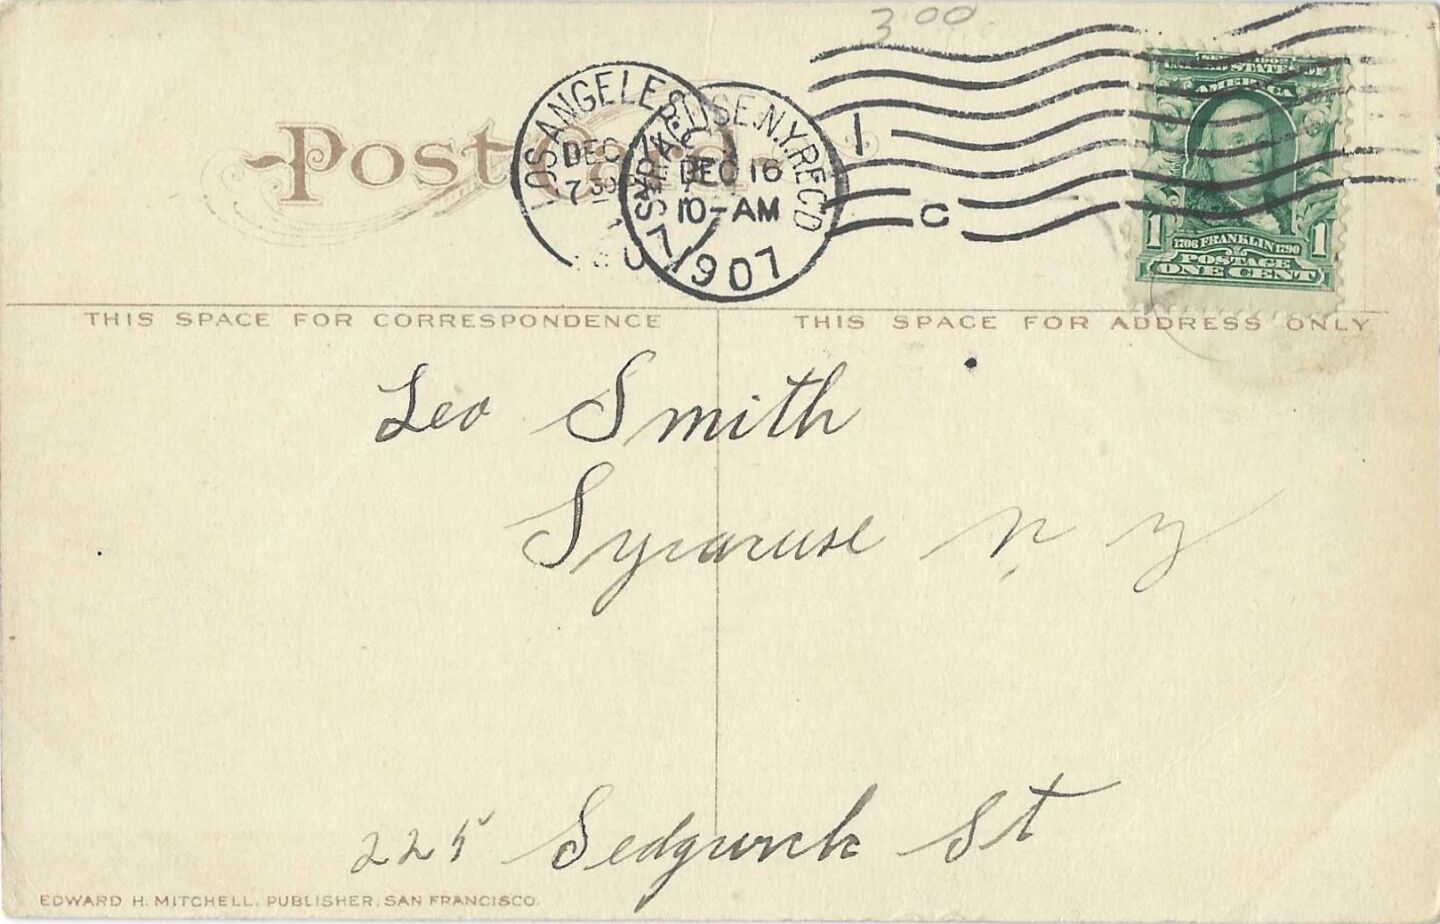 3 00
Post Card
LOS ANGELES
DEC
7 30
SYRACUSE, N.Y. REC'D
DEC 16
10-AM
1907
1
C
SERIES 1902
UNITED STATES OF
AMERICA
1 1
1706 FRANKLIN 1790
POSTAGE
ONE CENT
THIS SPACE FOR CORRESPONDENCE
THIS SPACE FOR ADDRESS ONLY
Leo Smith
Syracuse N Y
225 Sedgwick St
EDWARD H. MITCHELL, PUBLISHER, SAN FRANCISCO.